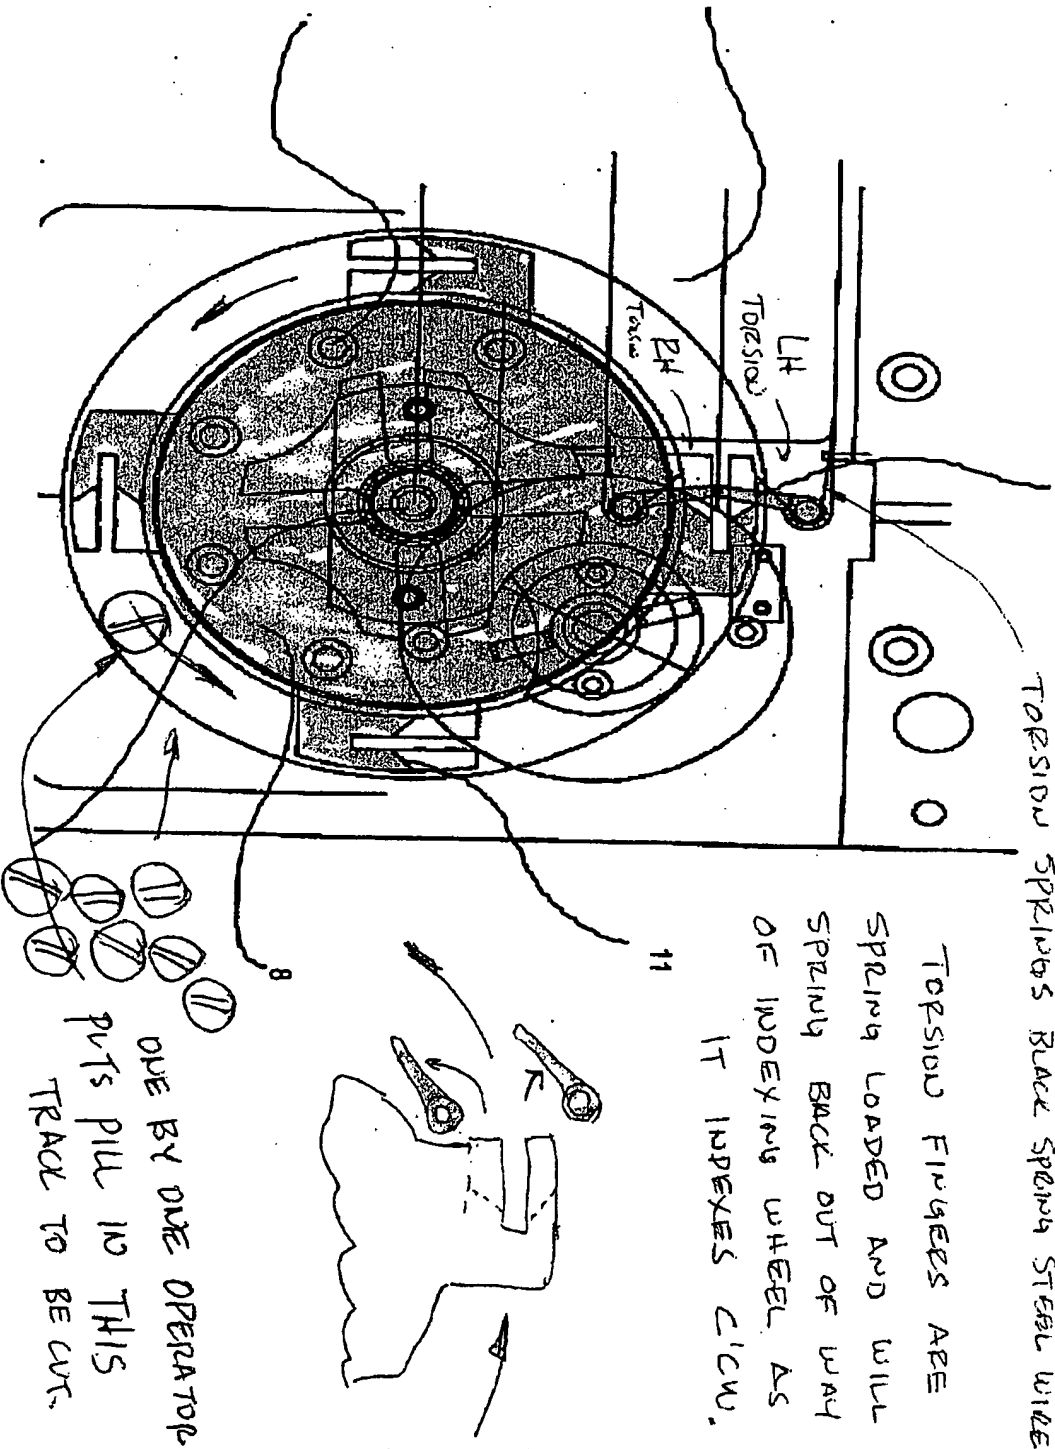 TORSION SPRINGS BLACK SPRING STEEL WIRE
TORSION FINGERS ARE
SPRING LOADED AND WILL
SPRING BACK OUT OF WAY
OF INDEXING WHEEL AS
IT INDEXES C'CW.
LH
TORSION
RH
TORSION
11
8
ONE BY ONE OPERATOR
PUTS PILL IN THIS
TRACK TO BE CUT.